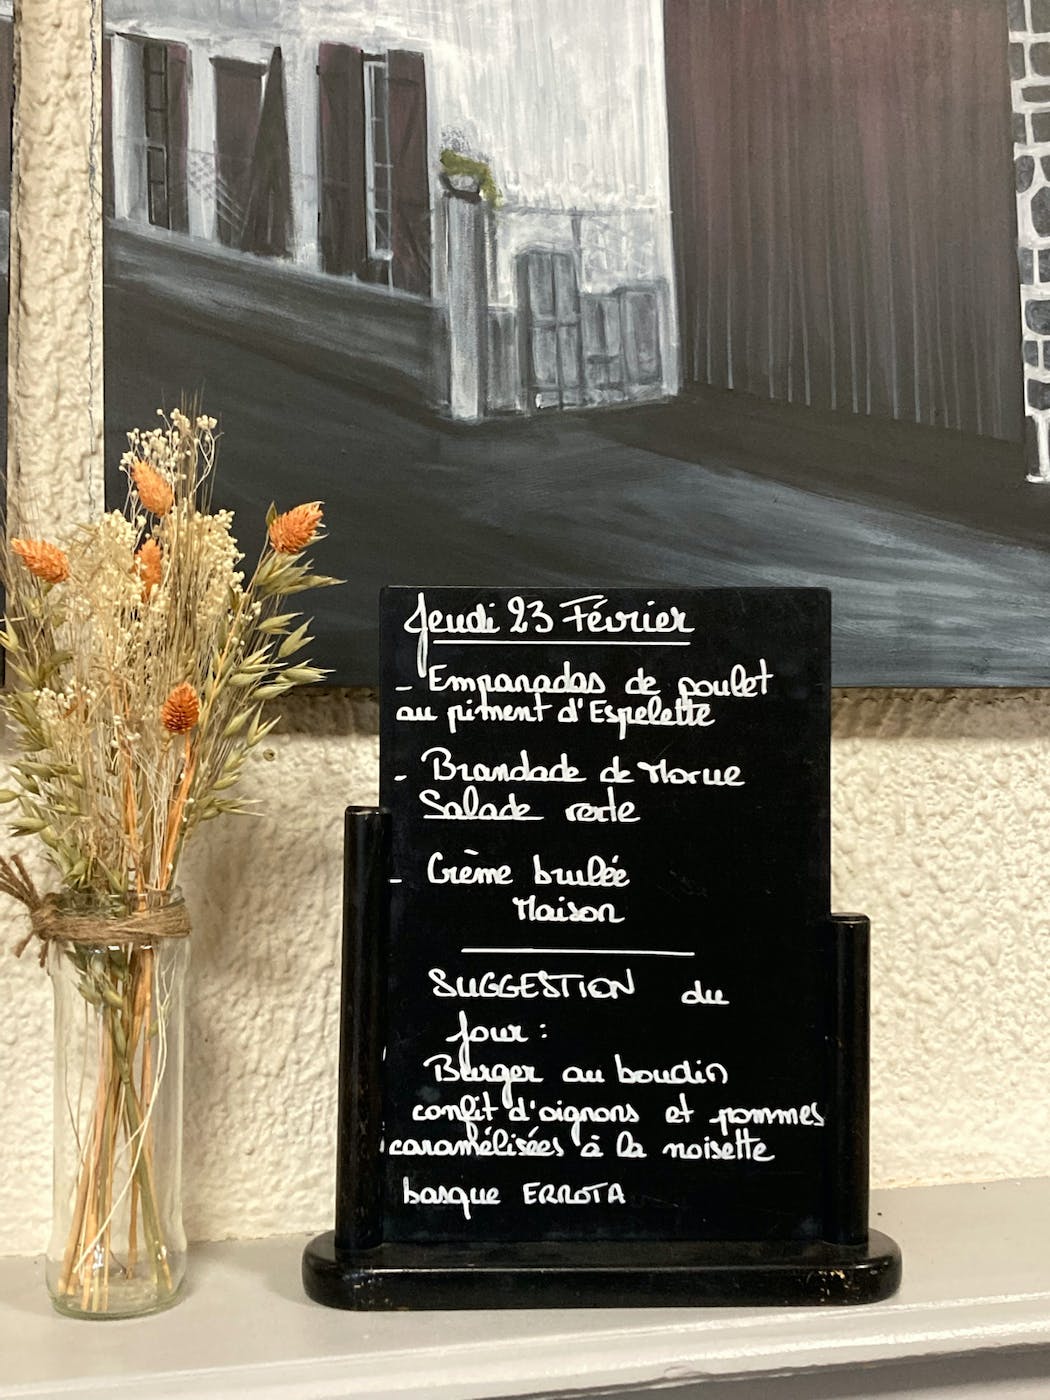 Jeudi 23 Février
- Empanadas de poulet
au piment d'Espelette
- Brandade de Morue
Salade verte
- Crème brulée
Maison
SUGGESTION du
jour :
Burger au boudin
confit d'oignons et pommes
caramélisées à la noisette
basque ERROTA